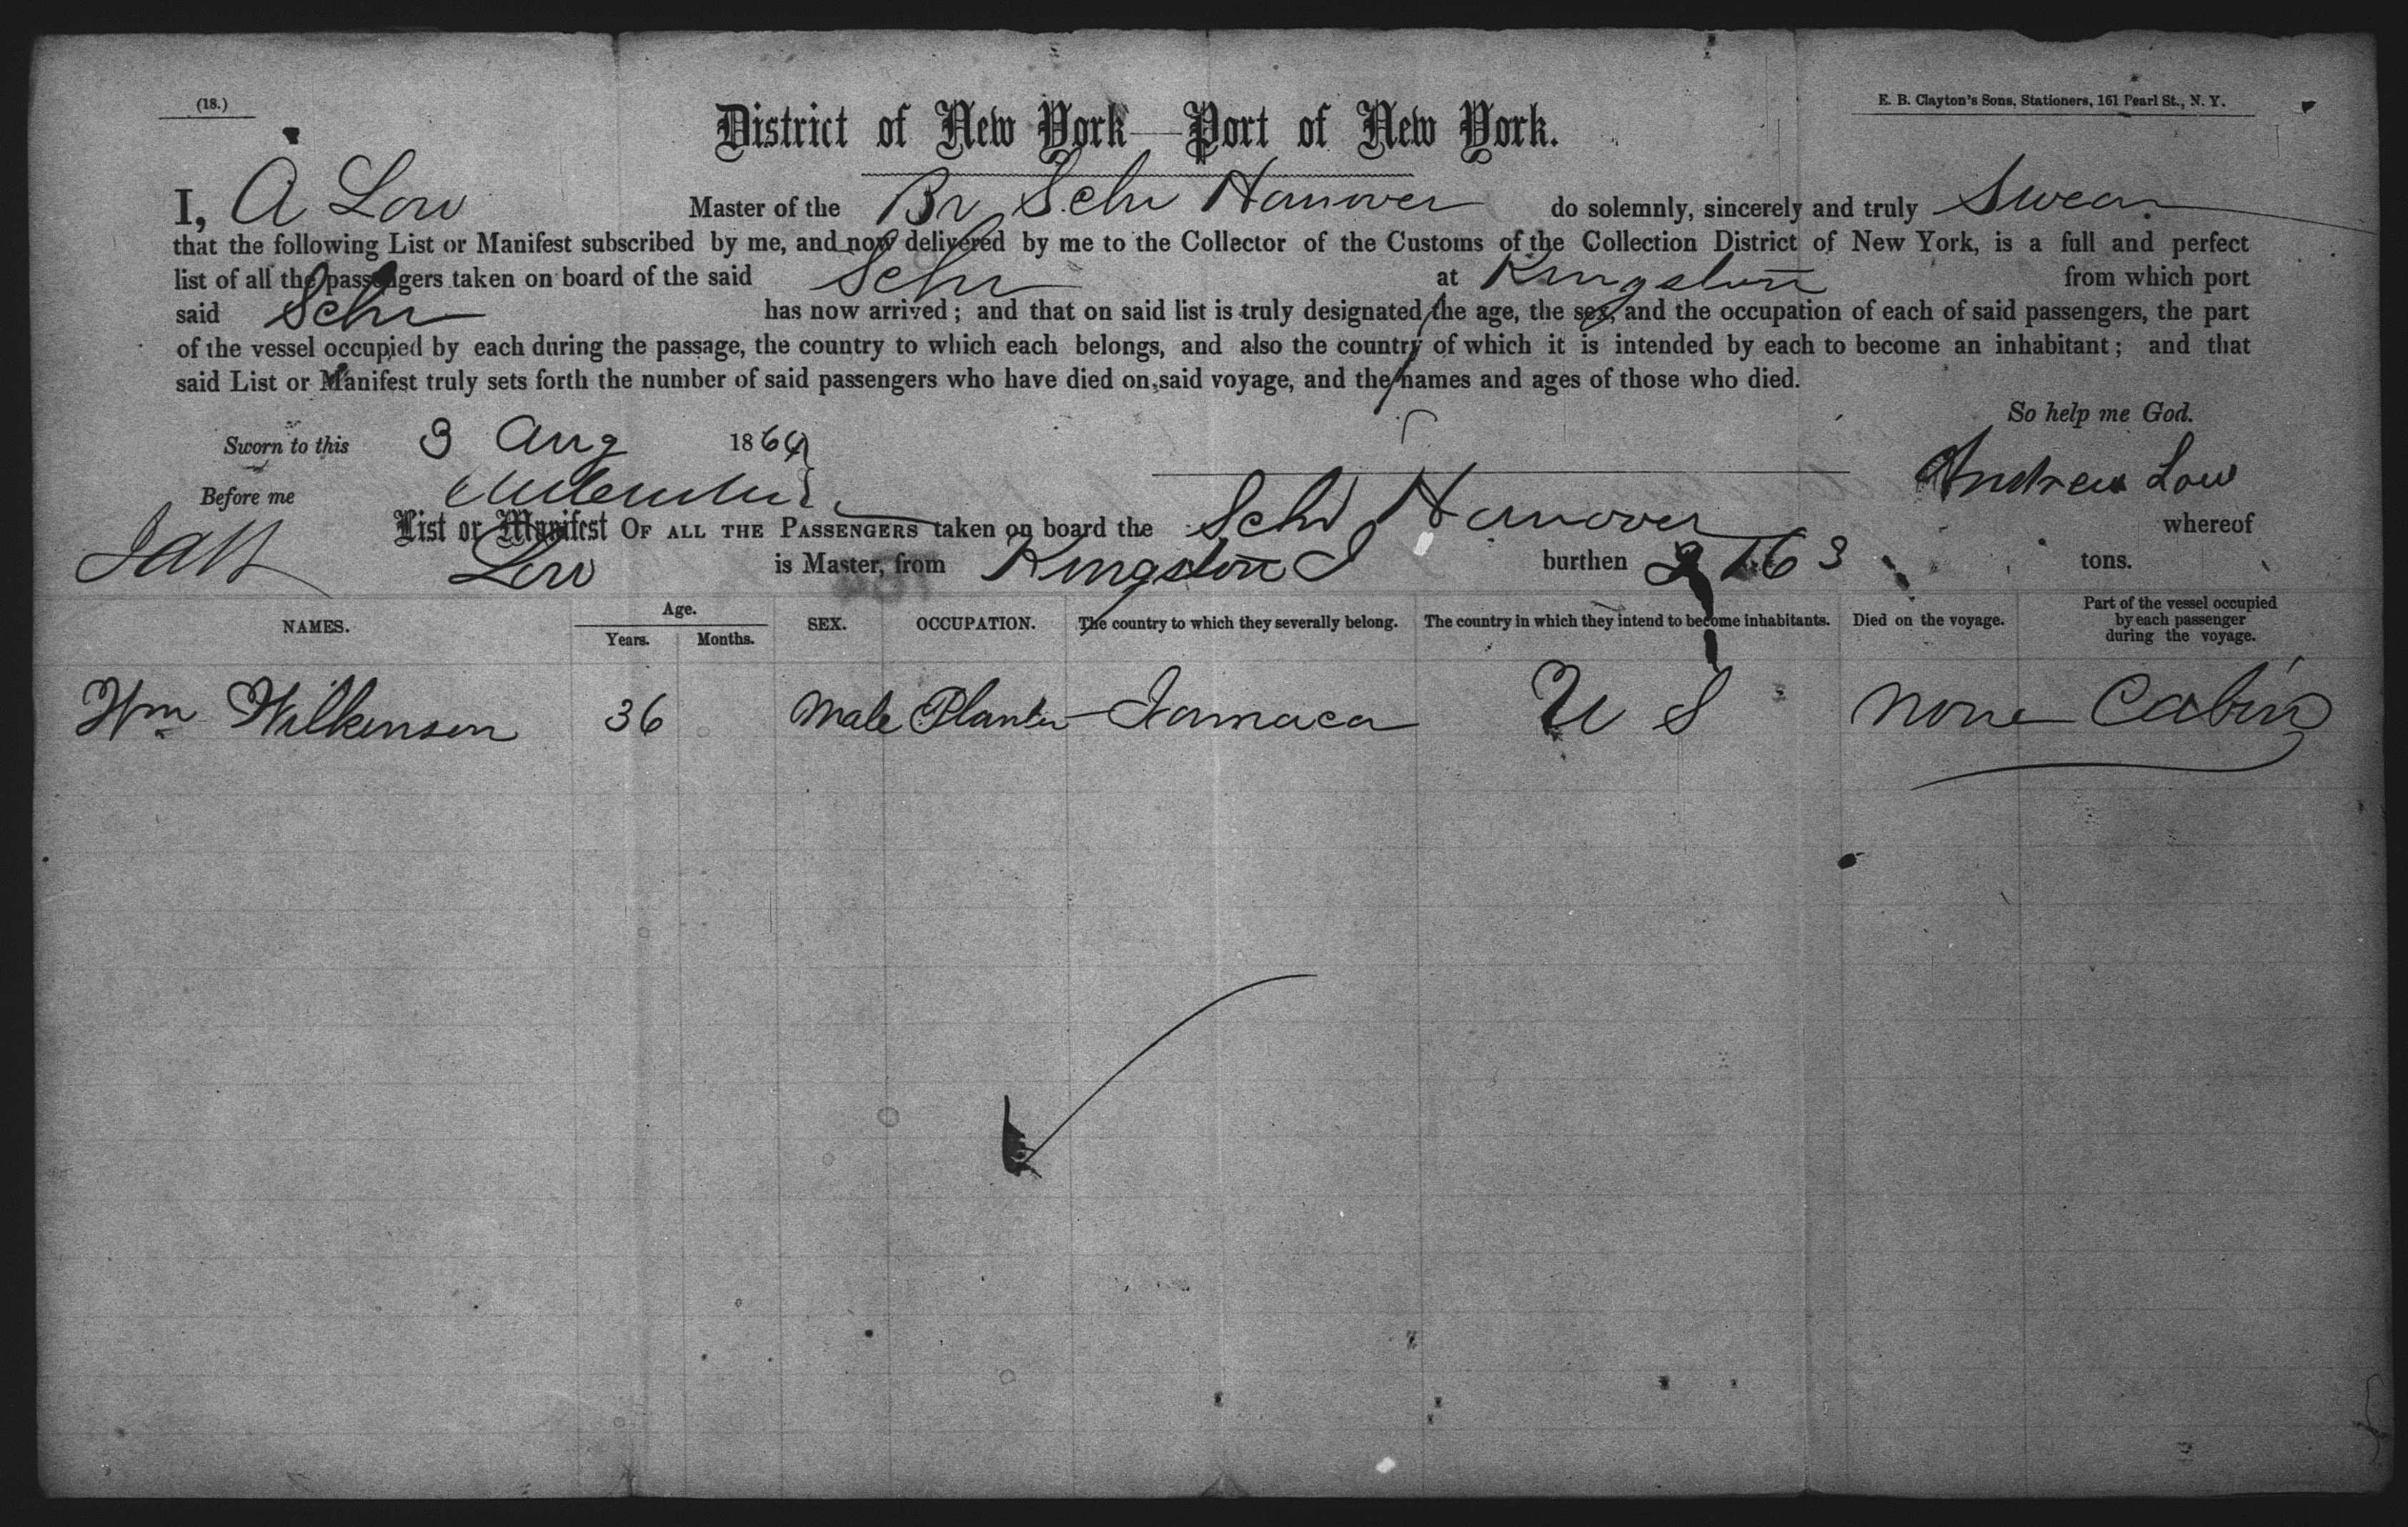 (18.)
E. B. Clayton's Sons, Stationers, 161 Pearl St., N. Y.
District of New York—Port of New York.
I, A Low Master of the Br Schr Hanover do solemnly, sincerely and truly Swear
that the following List or Manifest subscribed by me, and now delivered by me to the Collector of the Customs of the Collection District of New York, is a full and perfect
list of all the passengers taken on board of the said Schr at Kingston from which port
said Schr has now arrived; and that on said list is truly designated the age, the sex, and the occupation of each of said passengers, the part
of the vessel occupied by each during the passage, the country to which each belongs, and also the country of which it is intended by each to become an inhabitant; and that
said List or Manifest truly sets forth the number of said passengers who have died on said voyage, and the names and ages of those who died.
So help me God.
Sworn to this 3 Aug 186
Andrew Low
Before me
List or Manifest OF ALL THE PASSENGERS taken on board the Schr Hanover whereof
Low is Master, from Kingston J burthen 163 tons.
NAMES. Age. Years. Months. SEX. OCCUPATION. The country to which they severally belong. The country in which they intend to become inhabitants. Died on the voyage. Part of the vessel occupied by each passenger during the voyage.
Wm Wilkinson 36 Male Planter Jamaca U S none Cabin